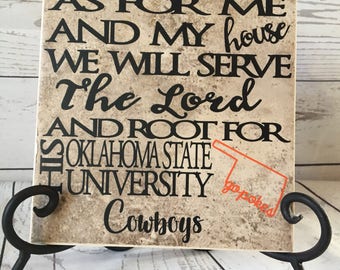 AS FOR ME
AND MY house
WE WILL SERVE
The Lord
AND ROOT FOR
THIS
OKLAHOMA STATE
UNIVERSITY
go pokes
Cowboys